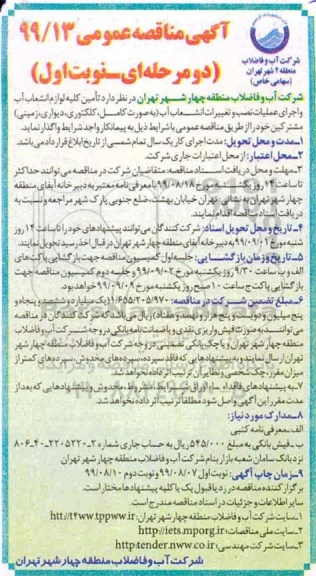 آگهی مناقصه عمومی ۹۹/۱۳
(دو مرحله‌ای ـ نوبت اول)
شرکت آب و فاضلاب
منطقه ۴ شهر تهران
(سهامی خاص)
شرکت آب و فاضلاب منطقه چهار شهر تهران در نظر دارد تأمین کلیه لوازم انشعاب آب
و اجرای عملیات نصب و تغییرات انشعاب آب (به صورت کامل، کلکتوری، دیواری، زمینی)
مشترکین خود را از طریق مناقصه عمومی با شرایط ذیل به پیمانکار واجد شرایط واگذار نماید.
۱ـ مدت و محل تحویل: مدت اجرای کار یک سال تمام شمسی از تاریخ ابلاغ قرارداد می‌باشد.
۲ـ محل اعتبار: از محل اعتبارات جاری شرکت.
۳ـ مهلت و محل دریافت اسناد مناقصه: متقاضیان شرکت در مناقصه می‌توانند حداکثر
تا ساعت ۱۴ روز یکشنبه مورخ ۹۹/۰۸/۱۸ با معرفی نامه معتبر به دبیرخانه آبفای منطقه
چهار شهر تهران به نشانی تهران خیابان بهشت، ضلع جنوبی پارک شهر مراجعه و نسبت به
دریافت اسناد مناقصه اقدام نمایند.
۴ـ تاریخ و محل تحویل اسناد: شرکت کنندگان می‌توانند پیشنهادهای خود را تا ساعت ۱۴ روز
شنبه مورخ ۹۹/۰۹/۰۱ به دبیرخانه آبفای منطقه چهار شهر تهران در قبال اخذ رسید تحویل نمایند.
۵ـ تاریخ و زمان بازگشایی: جلسه اول کمیسیون مناقصه جهت بازگشایی پاکت‌های
الف و ب ساعت ۹/۳۰ روز یکشنبه مورخ ۹۹/۰۹/۰۲ و جلسه دوم کمیسیون مناقصه جهت
بازگشایی پاکت ج ساعت ۱۰ صبح روز یکشنبه مورخ ۹۹/۰۹/۰۹ خواهد بود.
۶ـ مبلغ تضمین شرکت در مناقصه: ۱/۶۵۵/۲۰۵/۹۷۰ (یک میلیارد و ششصد و پنجاه و
پنج میلیون و دویست و پنج هزار و نهصد و هفتاد) ریال می‌باشد که شرکت کنندگان در مناقصه
می‌توانند به صورت فیش واریزی نقدی و یا ضمانت نامه بانکی در وجه شرکت آب و فاضلاب
منطقه چهار شهر تهران و یا چک بانکی تضمینی در وجه شرکت آب و فاضلاب منطقه چهار شهر
تهران ارسال نمایند و به پیشنهادهایی که فاقد سپرده، سپرده‌های مخدوش، سپرده‌های کمتر از
میزان مقرر، چک شخصی و نظایر آن ترتیب اثر داده نخواهد شد.
۷ـ به پیشنهادهای فاقد امضاء اوراق شرایط مناقصه، مشروط، مخدوش و پیشنهادهایی که بعد از
مدت مقرر این آگهی واصل شود مطلقا ترتیب اثر داده نخواهد شد.
۸ـ مدارک مورد نیاز:
الف ـ معرفی‌نامه کتبی
ب ـ فیش بانکی به مبلغ ۵۴۵/۰۰۰ ریال به حساب جاری شماره ۲ـ۲۲۰۵۲۲۰ـ۴۰ـ۸۰۶
نزد بانک سامان شعبه بازار بنام شرکت آب و فاضلاب منطقه چهار شهر تهران
۹ـ زمان چاپ آگهی: نوبت اول ۹۹/۰۸/۰۷ و نوبت دوم ۹۹/۰۸/۱۰
برگزار کننده مناقصه در رد یا قبول یک یا کلیه پیشنهادها مختار است.
سایر اطلاعات و جزئیات در اسناد مناقصه مندرج است.
۱ـ سایت شرکت آب و فاضلاب منطقه چهار شهر تهران: http://t4ww.tppww.ir
۲ـ سایت ملی مناقصات: http://iets.mporg.ir
۳ـ سایت شرکت مهندسی: http:tender.nww.co.ir
شرکت آب و فاضلاب منطقه چهار شهر تهران